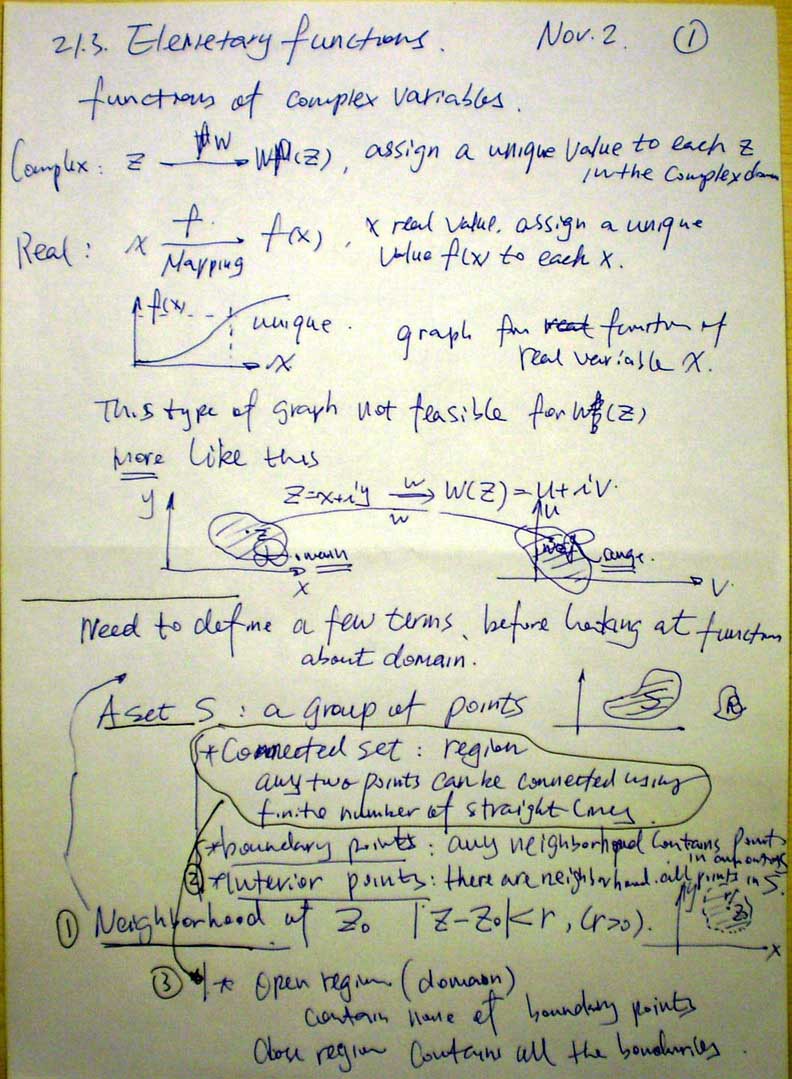 21.3. Elemetary functions. Nov. 2. ①
functions of complex variables.
Complex: z → W (z), assign a unique value to each z
W
in the complex domain
Real: x → f(x), x real value. assign a unique
f
Mapping
value f(x) to each x.
f(x)
unique.
x
graph for function of
real variable x.
This type of graph not feasible for W(z)
More like this
z=x+iy → W(z)=u+iv.
w
y
x
z
w
u
v.
range.
Need to define a few terms, before looking at function
about domain.
A set S: a group of points
S
* Connected set: region
any two points can be connected using
finite number of straight lines.
* boundary points: any neighborhood contains points
in and out of S
② * Interior points: there are neighborhood all points in S.
① Neighborhood of z₀ |z-z₀|<r, (r>0).
y
r
z₀
x
③ * Open region (domain)
contain none of boundary points
Close region contains all the boundaries.